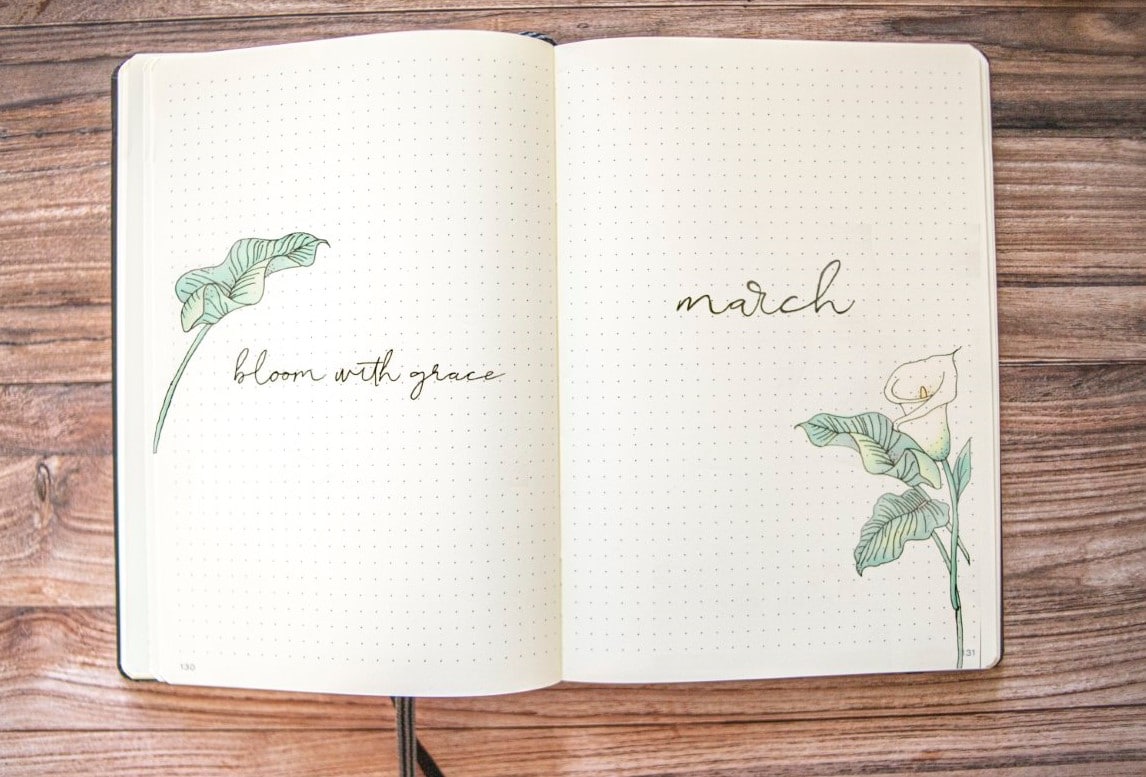 bloom with grace
130
march
131